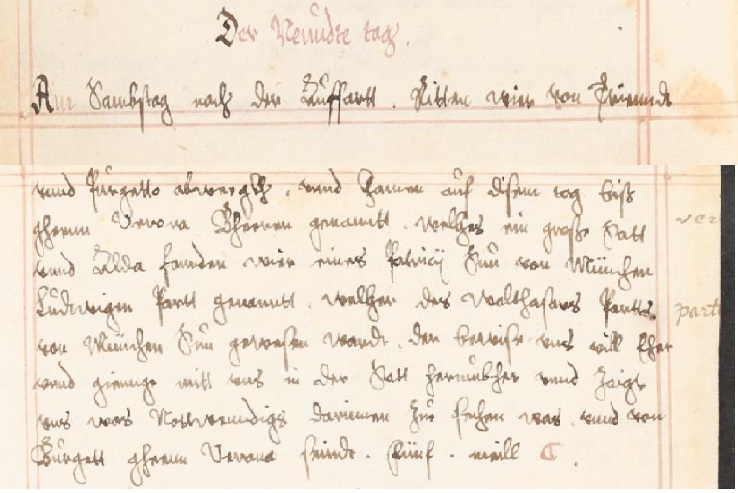 Der Neundte tag.
Am Sambstag nach der Auffartt. Ritten wier von Trienndt
vnnd Purgetto abweegkh, vnnd khamen auf disem tag biß
ghenn Verona Bheeren genanntt, welhes ein große Statt
vnnd Allda fanden wier eines Patricij Sun von München
Ludwigen Partt genanntt, welher des Balthasars Partts
von München Sun gewesen wardt, der bewise vns vill Eher
vnnd gienge mitt vns in der Statt herumbher vnnd Zeigt
vns was Nottwenndigs darinnen Zue sehen was, vnnd von
Burgett ghenn Verona seindt. Fünf. meill C.
ver
partt